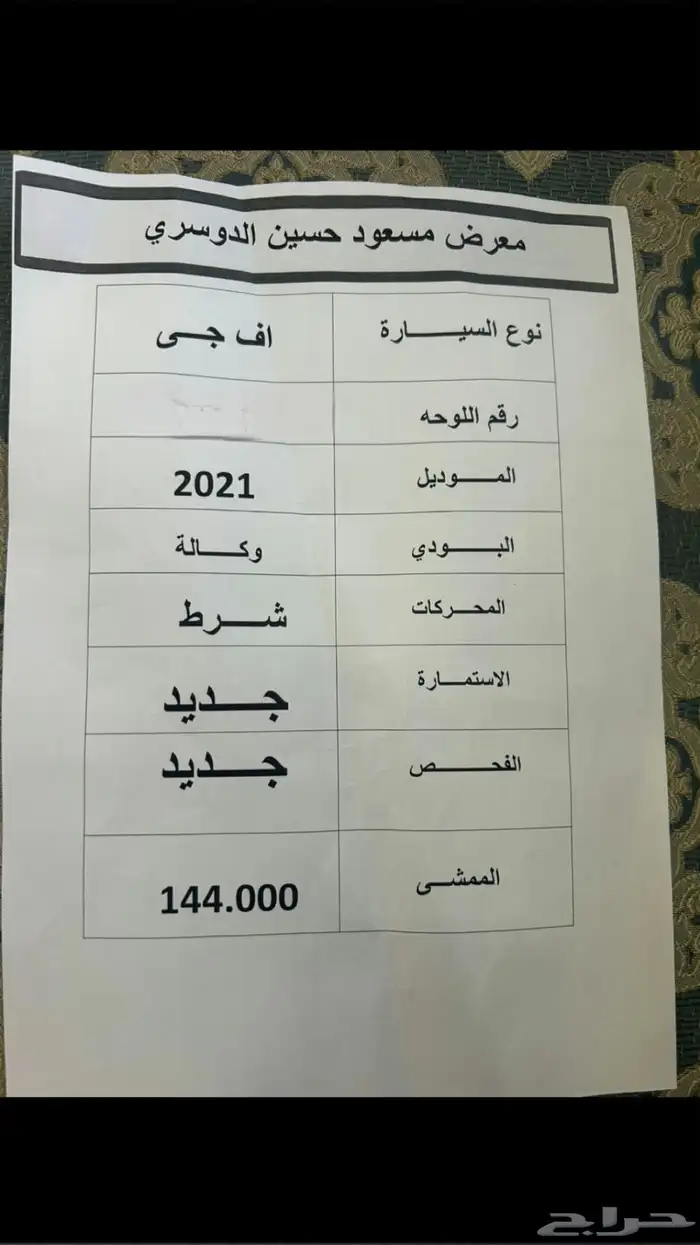 معرض مسعود حسين الدوسري
نوع السيارة اف جى
رقم اللوحه
الموديل 2021
البودي وكالة
المحركات شرط
الاستمارة جديد
الفحص جديد
الممشى 144.000
حراج